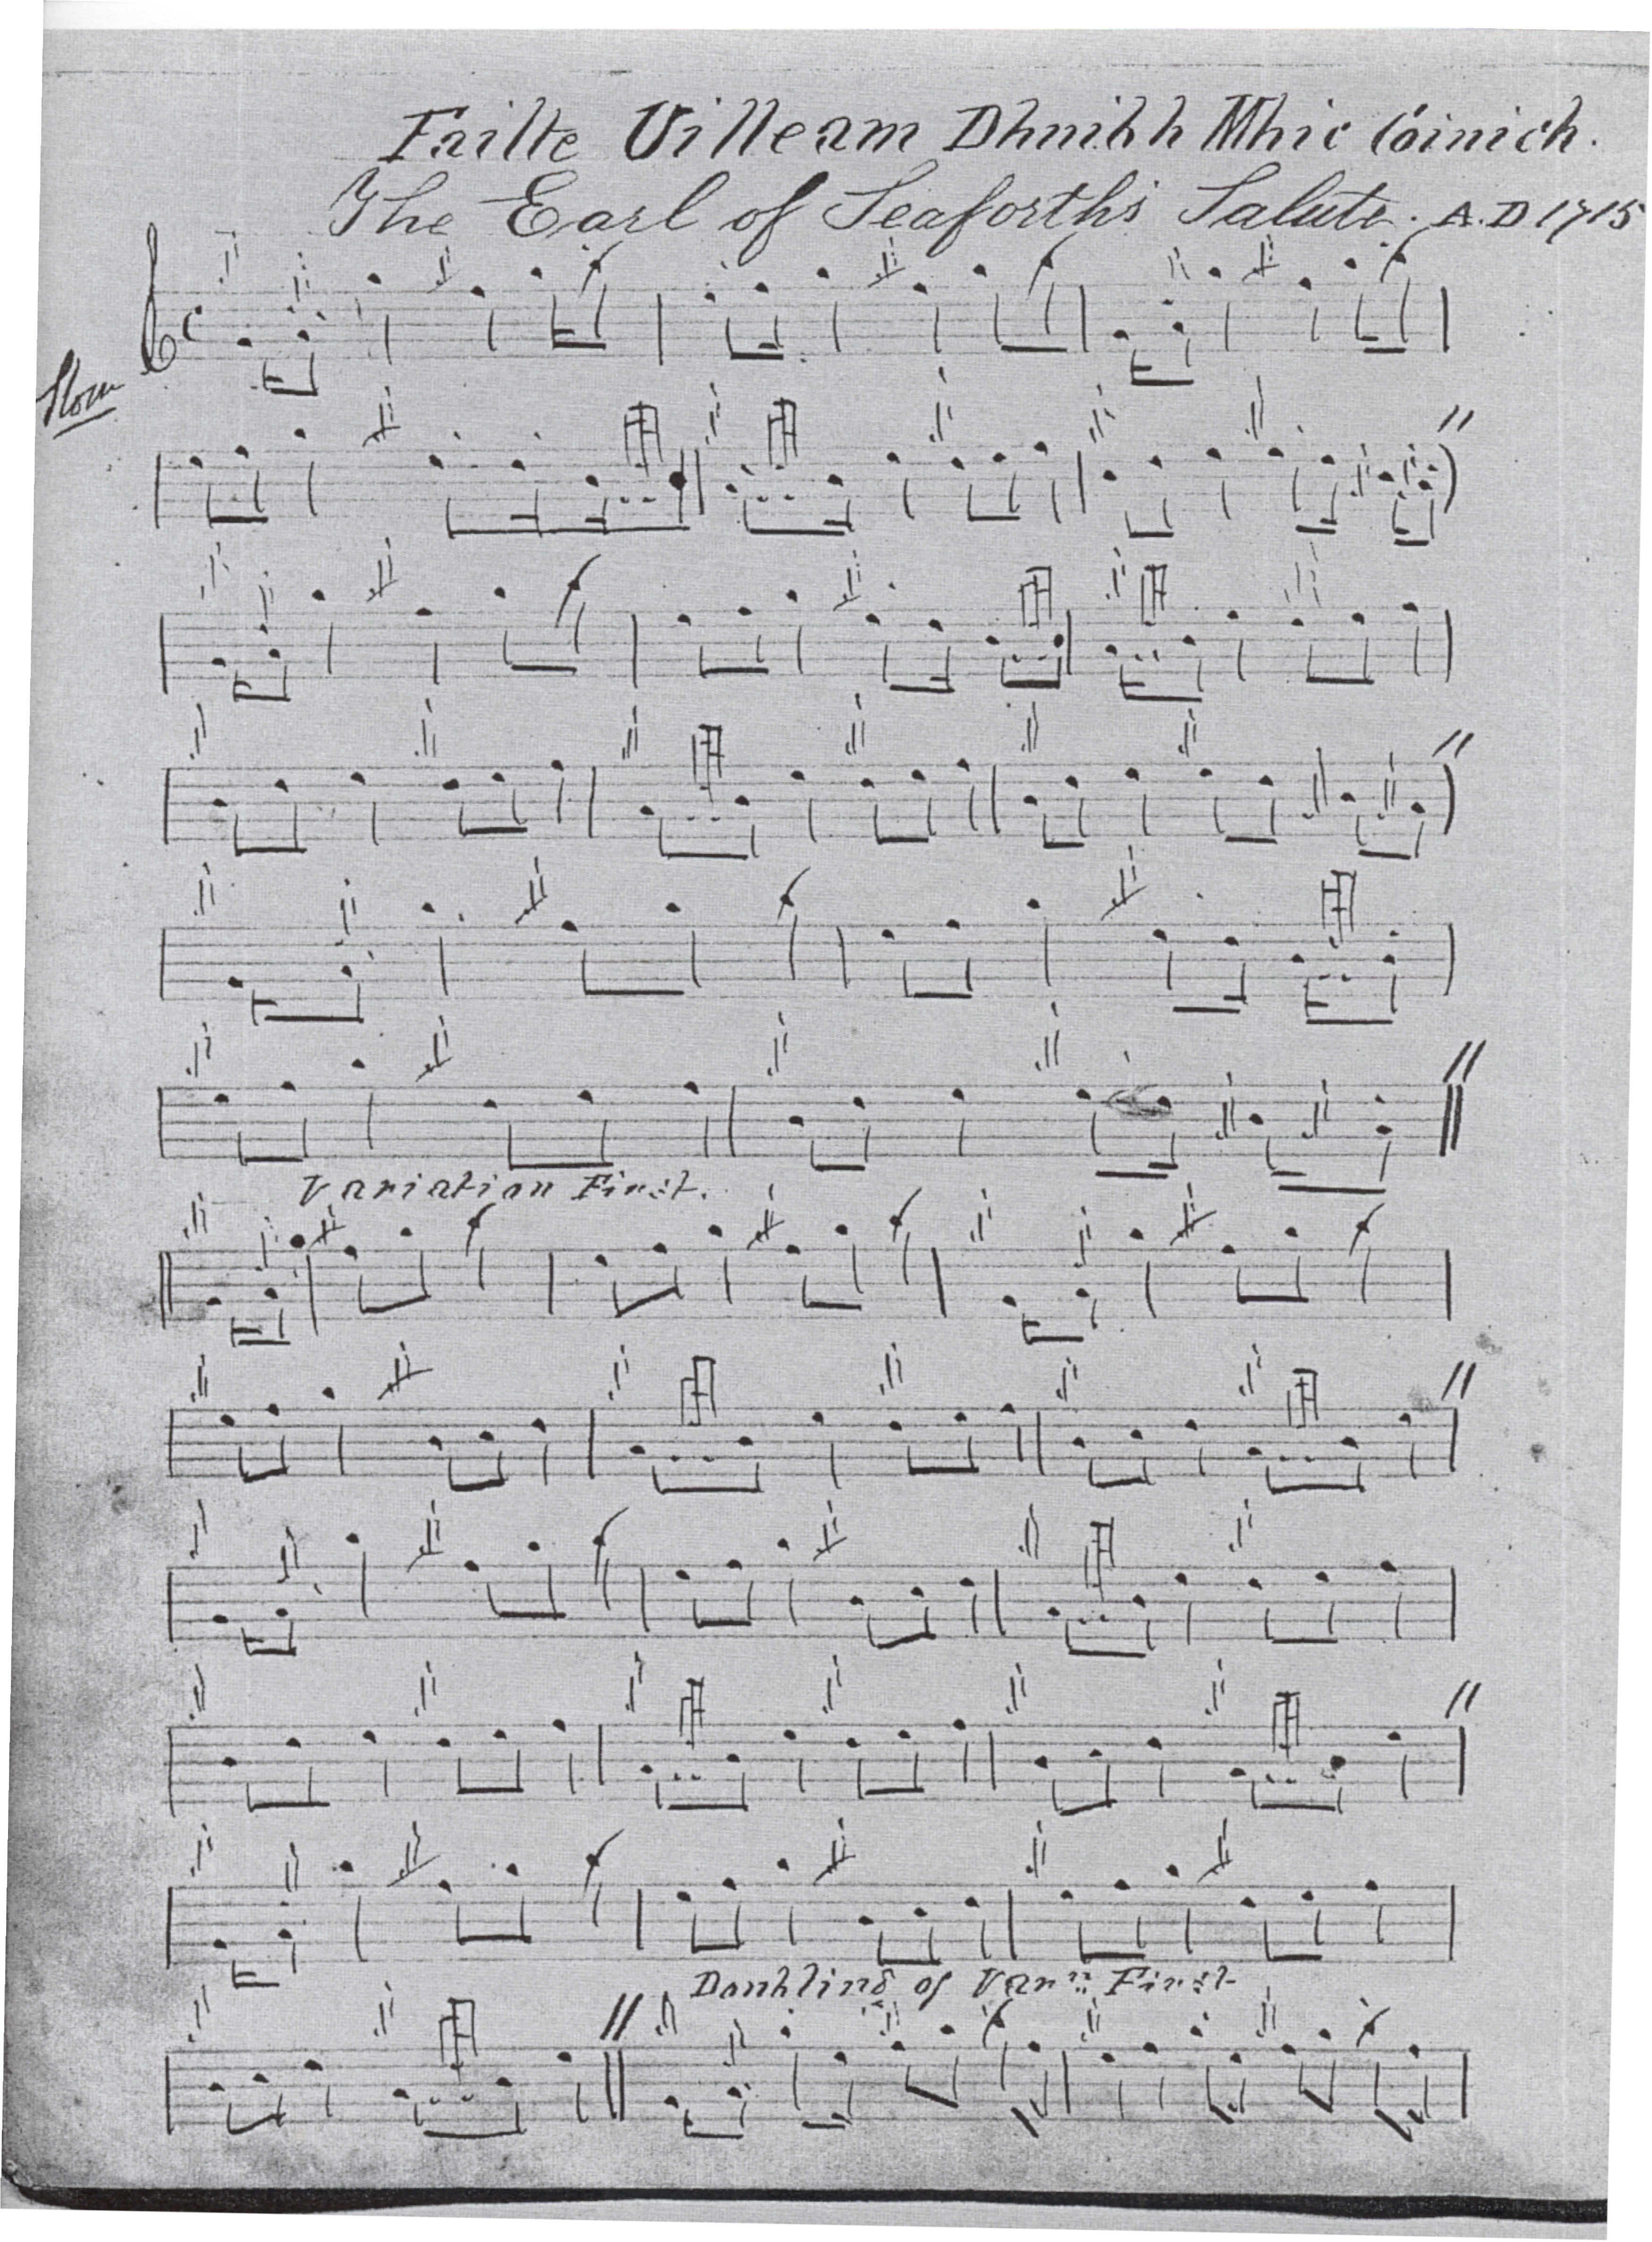 Failte Uilleam Dhuibh Mhic Coinich.
The Earl of Seaforth's Salute. A.D 1715
Slow
Variation First.
Doubling of Varn. First